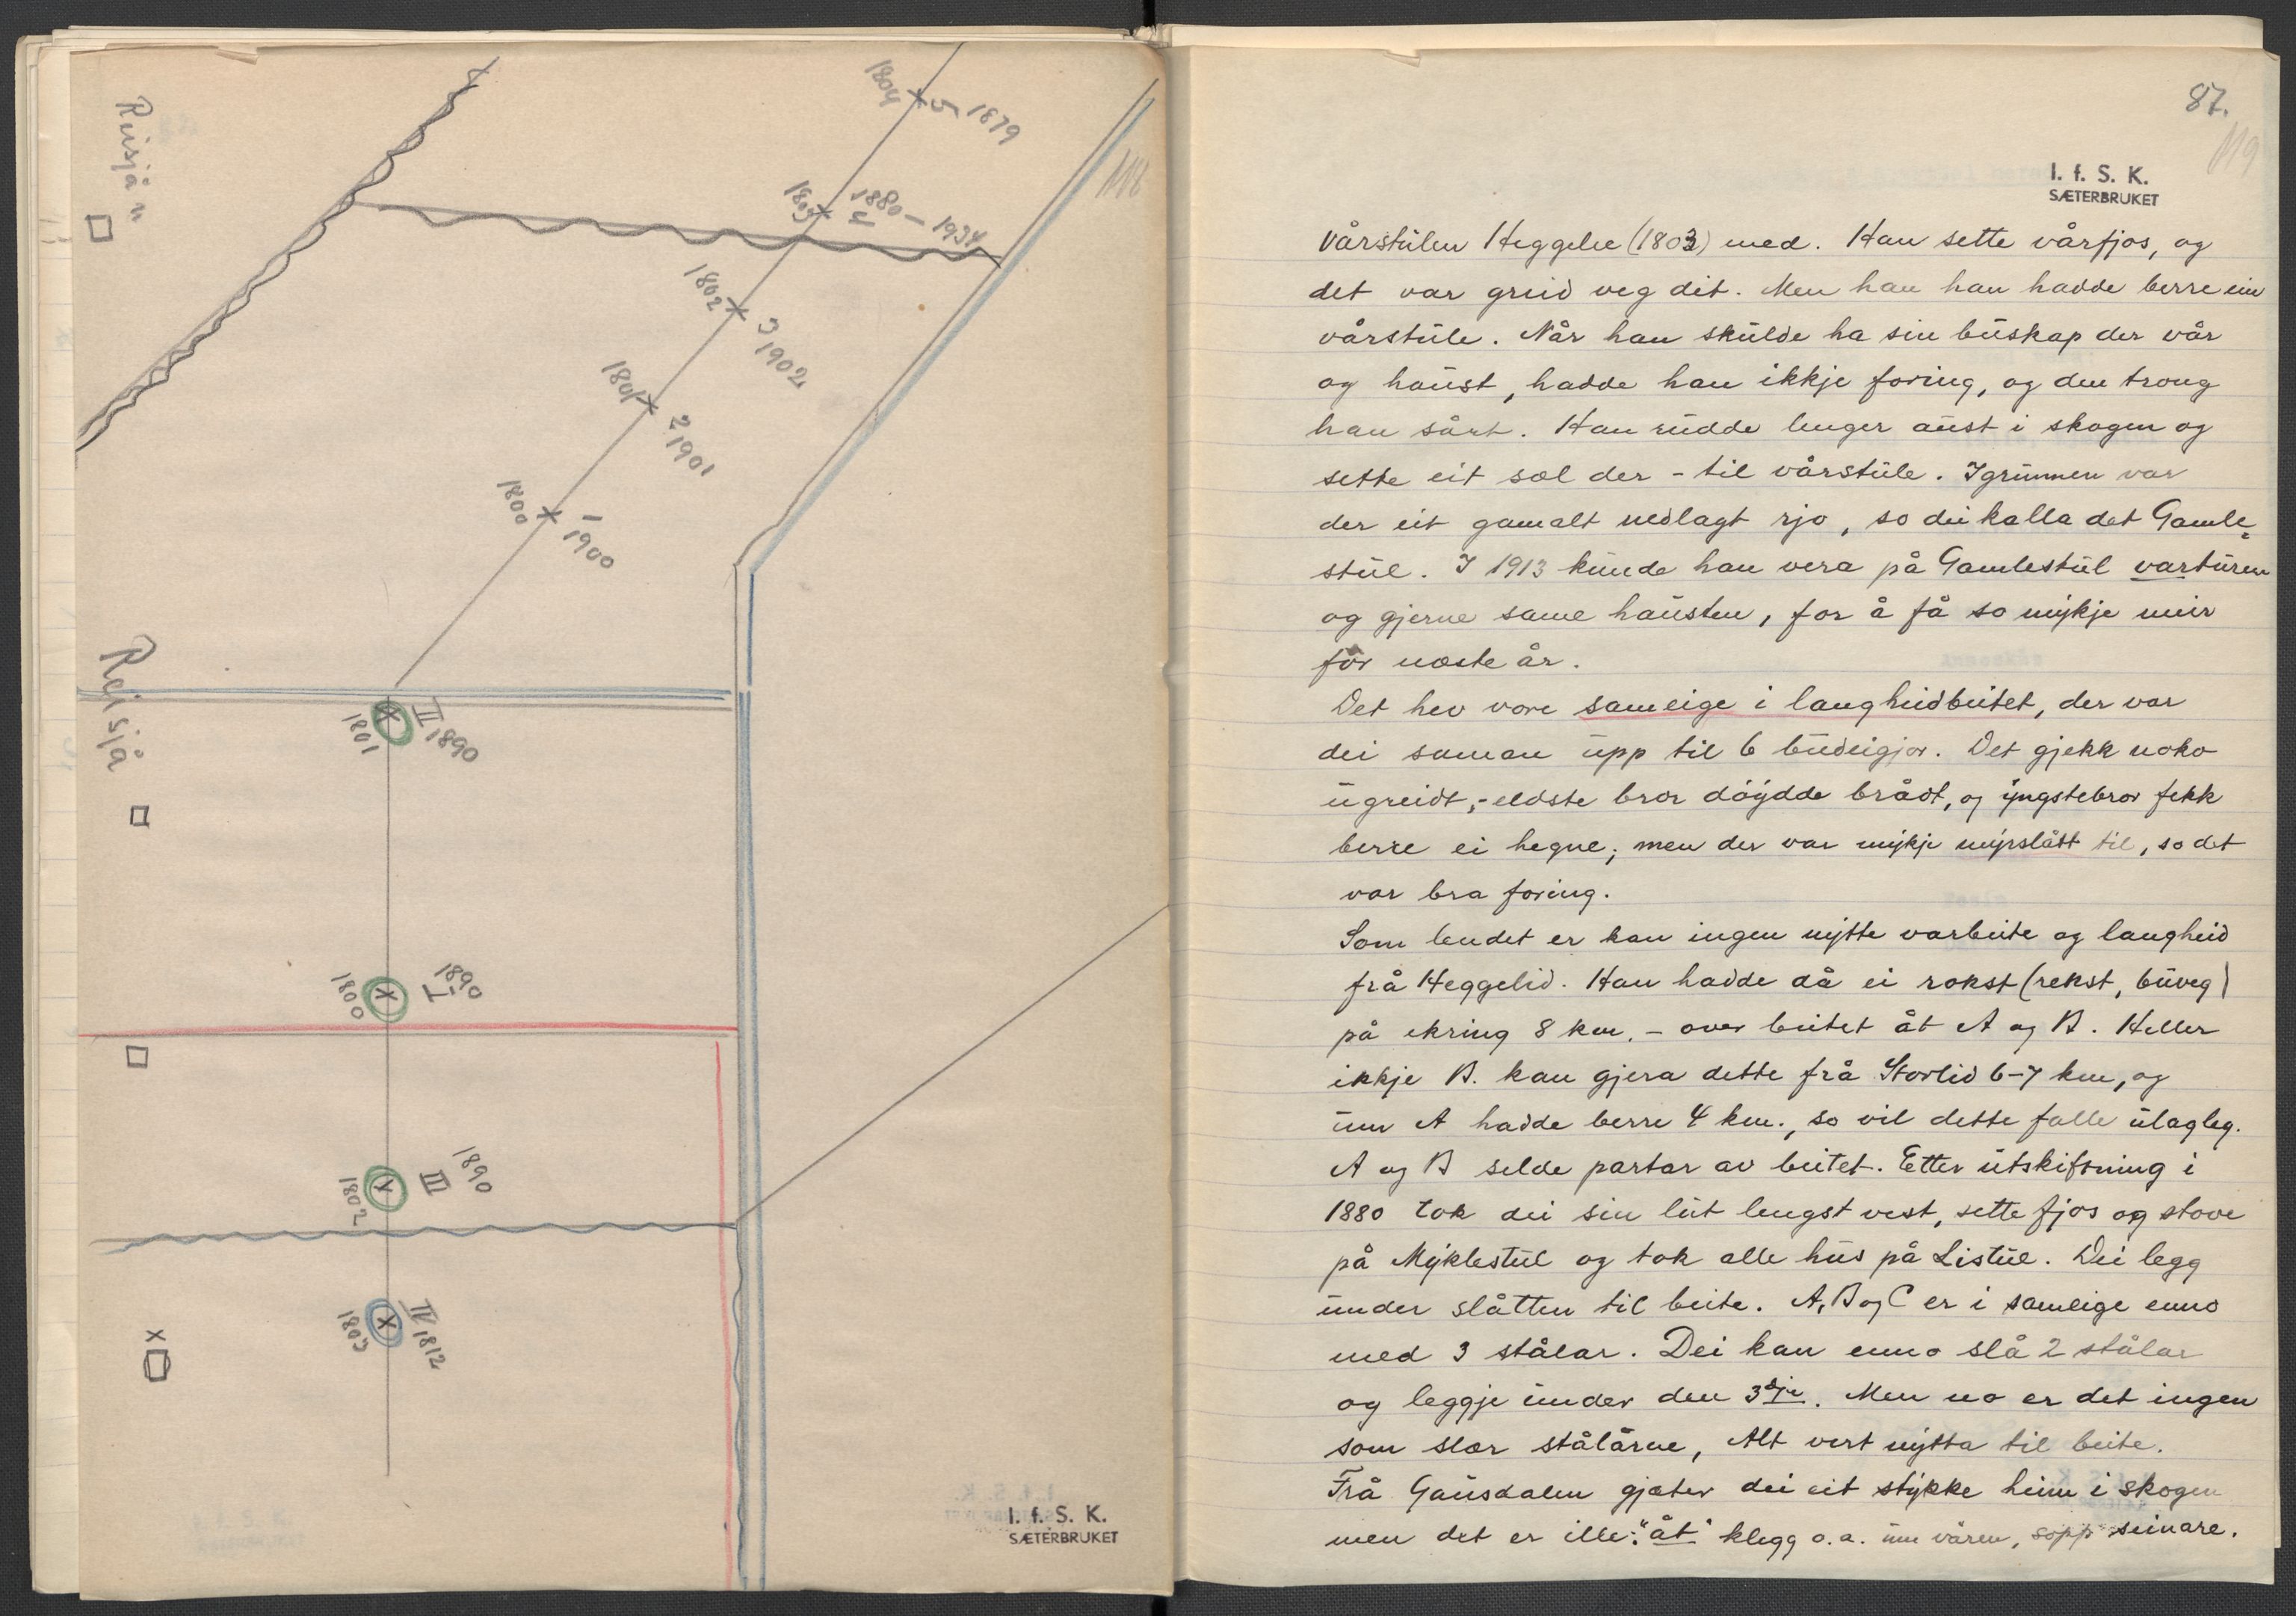 Reisjån
Reisjå
118
1804 5 1879
1803 4 1880-1934
1802 3 1902
1801 2 1901
1800 1 1900
II 1890
1801
I 1890
1800
III 1890
1802
IV 1812
1803
I. f. S. K.
SÆTERBRUKET
87.
119
I. f. S. K.
SÆTERBRUKET
Vårstulen Heggelie (1803) med. Han sette vårfjos, og
det var greid veg dit. Men han han hadde berre ein
vårstule. Når han skulde ha sin buskap der vår
og haust, hadde han ikkje foring, og den trong
han sårt. Han rudde lenger aust i skogen og
sette eit sæl der - til vårstule. Igrunnen var
der eit gamalt nedlagt rjo, so dei kalla det Gamle-
stul. I 1913 kunde han vera på Gamlestul varturen
og gjerne same hausten, for å få so mykje meir
fôr næste år.
Det hev vore sameige i langheidbeitet, der var
dei saman upp til 6 budeigjor. Det gjekk noko
ugreidt, - eldste bror döydde brådt, og yngstebror fekk
berre ei hegne; men der var mykje myrslått til, so det
var bra foring.
Som lendet er kan ingen nytte varbeite og langheid
frå Heggelid. Han hadde då ei rokst (rekst, buveg)
på ikring 8 km. - over beitet åt A og B. Heller
ikkje B. kan gjera dette frå Storlid 6-7 km, og
um A hadde berre 4 km., so vil dette falle ulagleg.
A og B selde partar av beitet. Etter utskiftning i
1880 tok dei sin lut lengst vest, sette fjos og stove
på Myklestul og tok alle hus på Listul. Dei legg
under slåtten til beite. A, B og C er i sameige enno
med 3 stålar. Dei kan enno slå 2 stålar
og leggje under den 3dje. Men no er det ingen
som slær stålarne, Alt vert nytta til beite.
Frå Gausdalen gjæter dei eit stykke heim i skogen
men det er ille: "åt" klegg o.a. um våren, sopp seinare.